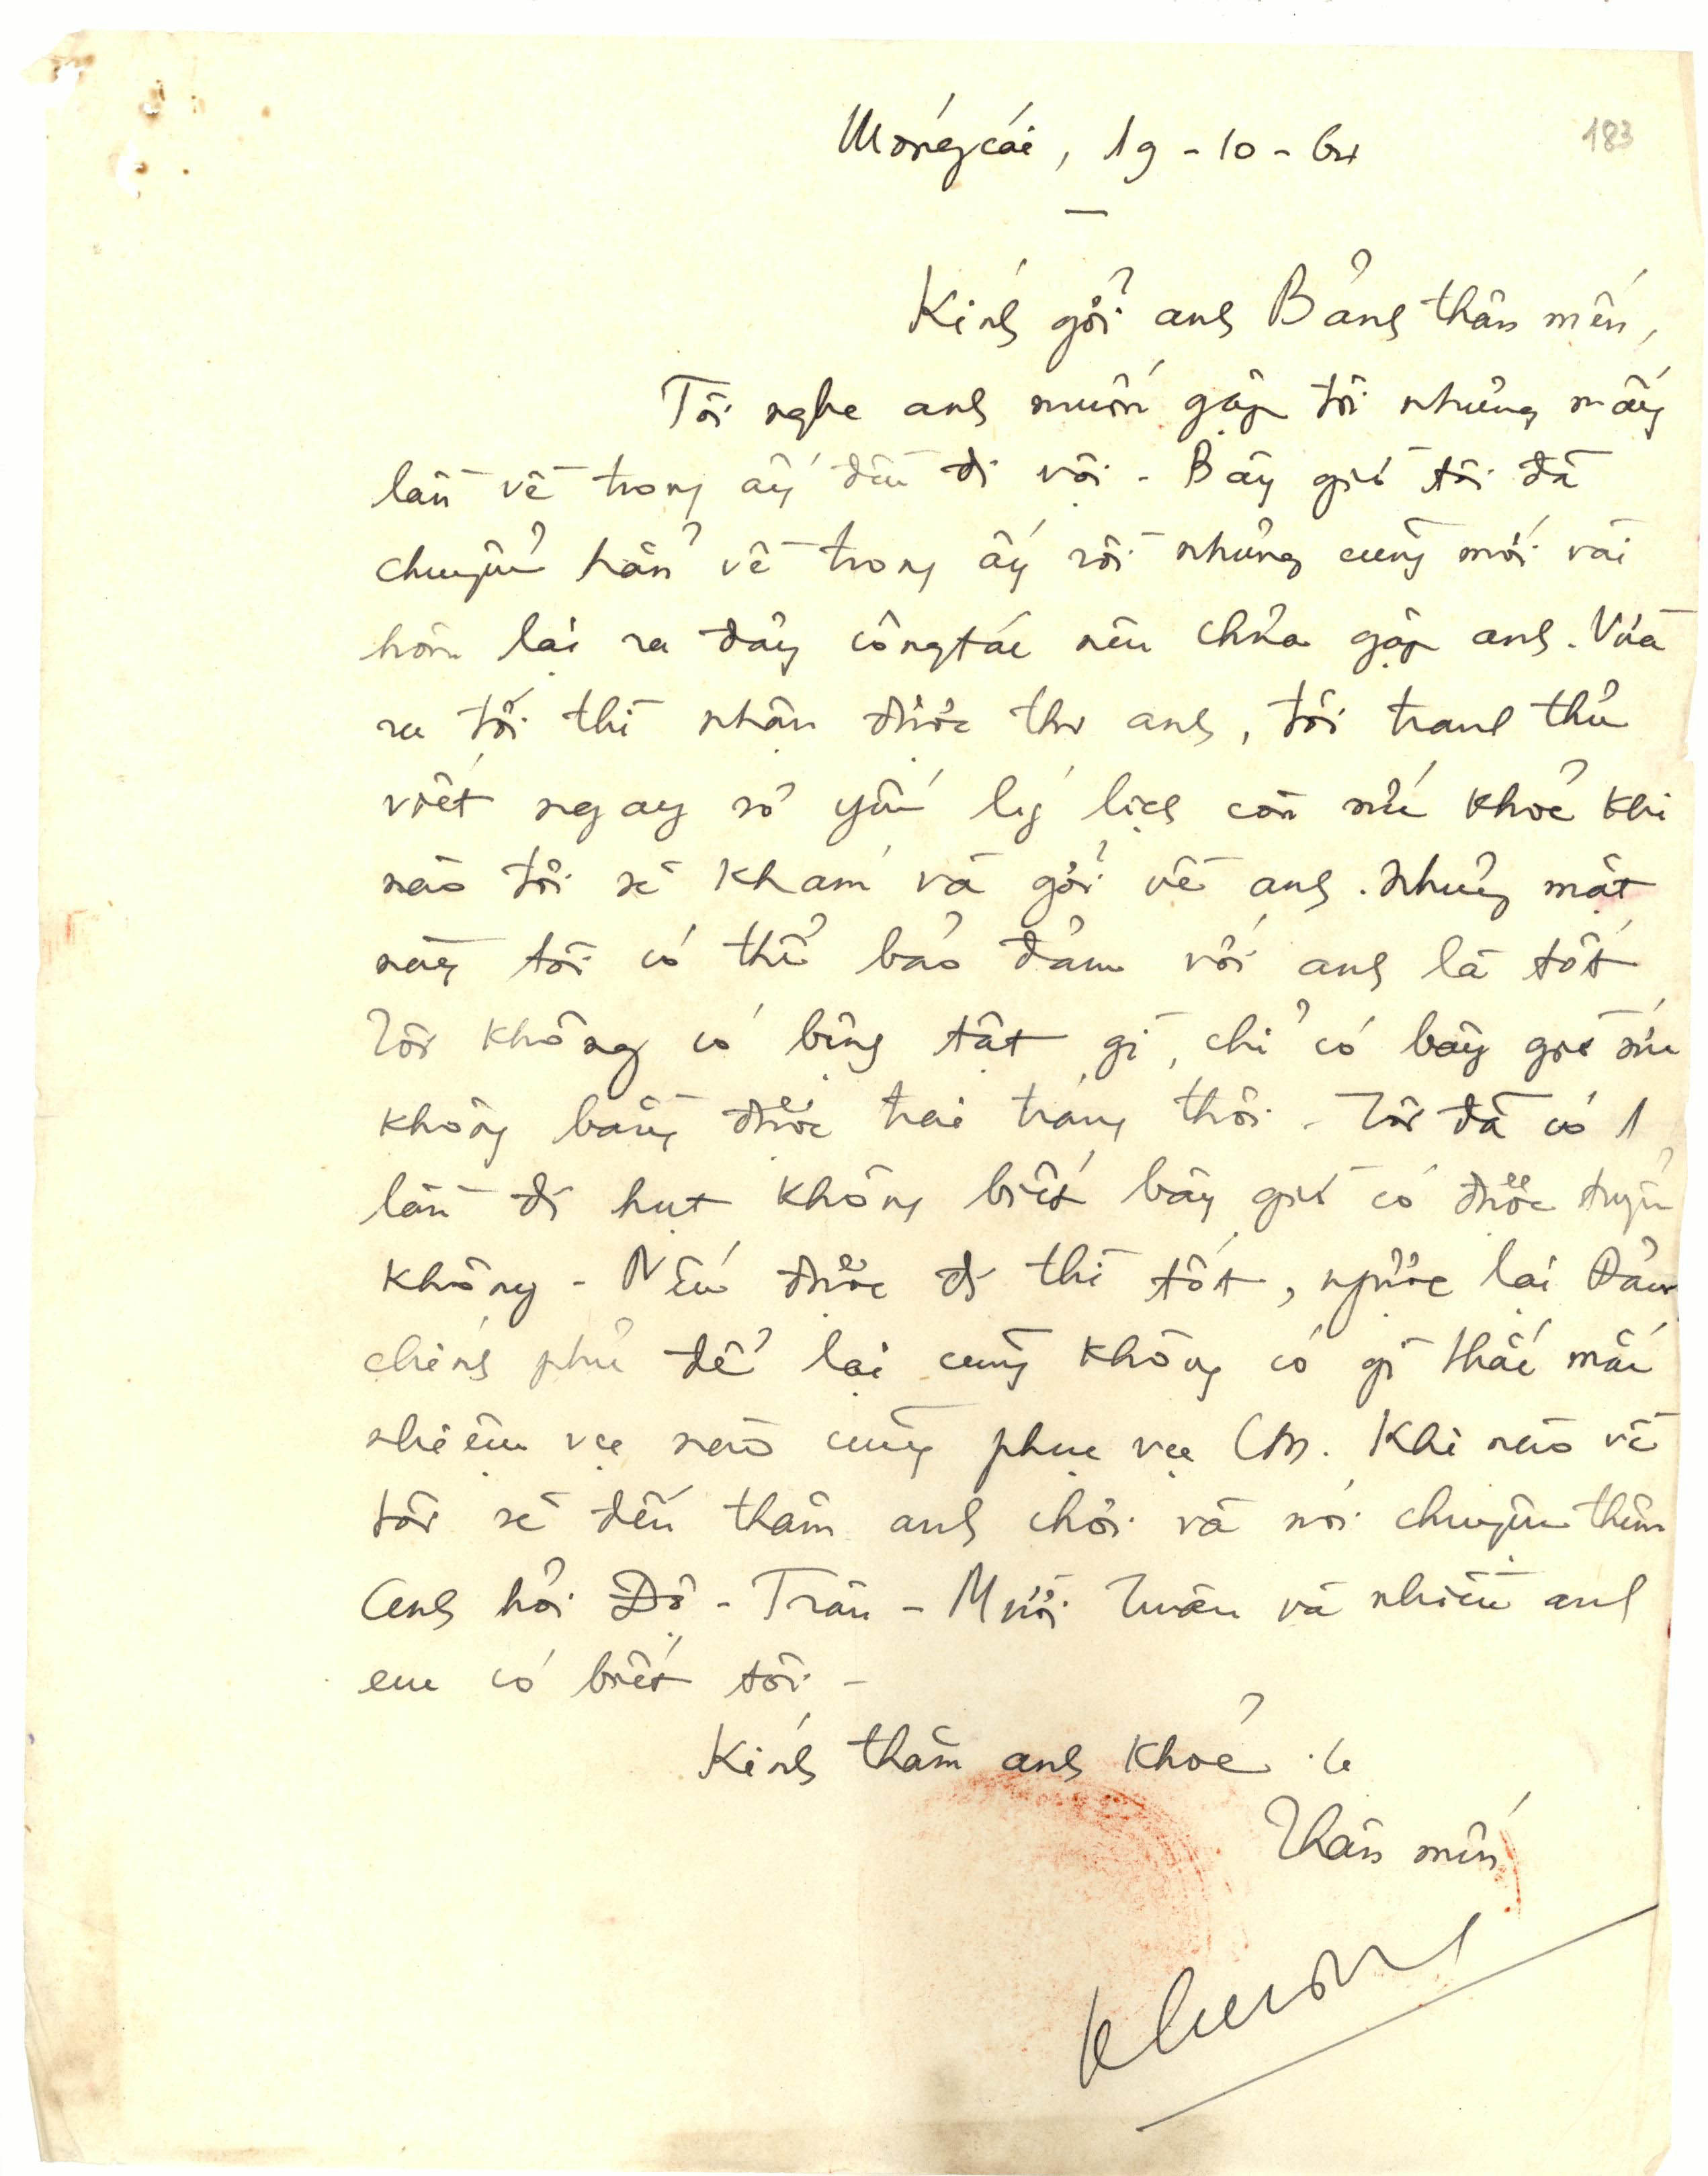 Móngcái, 19-10-64
183
Kính gởi anh Bảng thân mến,
Tôi nghe anh muốn gặp tôi nhưng mấy
lần về trong ấy đều đi vội - Bây giờ tôi đã
chuyển hẳn về trong ấy rồi nhưng cũng mới vài
hôm lại ra đây côngtác nên chưa gặp anh. Vừa
ra tới thì nhận được thư anh, tôi tranh thủ
viết ngay sơ yếu lý lịch còn sức khoẻ khi
nào tôi sẽ khám và gởi về anh. Nhưng mặt
này tôi có thể bảo đảm với anh là tốt
Tôi không có bệnh tật gì, chỉ có bây giờ sức
không bằng được trai tráng thôi - Tôi đã có 1
lần đi hụt không biết bây giờ có được tuyển
không - Nếu được đi thì tốt, ngược lại Đảng
chính phủ để lại cũng không có gì thắc mắc
nhiệm vụ nào cũng phục vụ CM. Khi nào về
tôi sẽ đến thăm anh chơi và nói chuyện thêm
Anh hỏi Độ - Trân - Mười Tuân và nhiều anh
em có biết tôi -
Kính thăm anh khoẻ
Thân mến